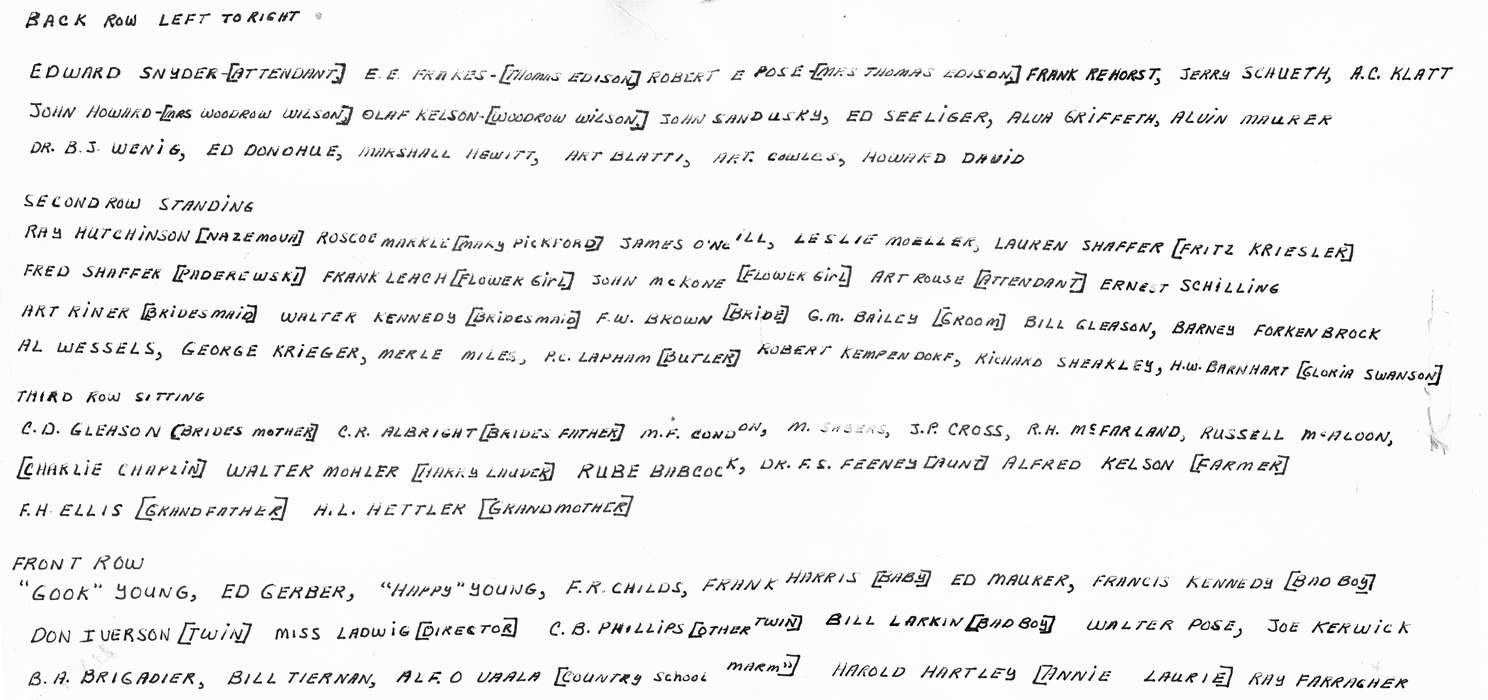 BACK ROW LEFT TO RIGHT
EDWARD SNYDER-[ATTENDANT] E.E. FRAKES-[THOMAS EDISON] ROBERT E POSE-[MRS THOMAS EDISON] FRANK REHORST, JERRY SCHUETH, A.C. KLATT
JOHN HOWARD-[MRS WOODROW WILSON] OLAF KELSON-[WOODROW WILSON] JOHN SANDUSKY, ED SEELIGER, ALVA GRIFFETH, ALVIN MAURER
DR. B.J. WENIG, ED DONOHUE, MARSHALL HEWITT, ART BLATTI, ART. COWLES, HOWARD DAVID
SECOND ROW STANDING
RAY HUTCHINSON [NAZEMOVA] ROSCOE MARKLE [MARY PICKFORD] JAMES O'NEILL, LESLIE MOELLER, LAUREN SHAFFER [FRITZ KRIESLER]
FRED SHAFFER [PADEREWSKI] FRANK LEACH [FLOWER GIRL] JOHN MCKONE [FLOWER GIRL] ART ROUSE [ATTENDANT] ERNEST SCHILLING
ART RINER [BRIDESMAID] WALTER KENNEDY [BRIDESMAID] F.W. BROWN [BRIDE] G.M. BAILEY [GROOM] BILL GLEASON, BARNEY FORKENBROCK
AL WESSELS, GEORGE KRIEGER, MERLE MILES, P.C. LAPHAM [BUTLER] ROBERT KEMPENDORF, RICHARD SHEAKLEY, H.W. BARNHART [GLORIA SWANSON]
THIRD ROW SITTING
C.D. GLEASON (BRIDES MOTHER] C.R. ALBRIGHT [BRIDES FATHER] M.F. CONDON, M. J.P. CROSS, R.H. MCFARLAND, RUSSELL MCALOON,
[CHARLIE CHAPLIN] WALTER MOHLER [HARRY LAUDER] RUBE BABCOCK, DR. F.S. FEENEY [AUNT] ALFRED KELSON [FARMER]
F.H. ELLIS [GRANDFATHER] H.L. HETTLER [GRANDMOTHER]
FRONT ROW
"GOOK" YOUNG, ED GERBER, "HAPPY" YOUNG, F.R. CHILDS, FRANK HARRIS [BABY] ED MAURER, FRANCIS KENNEDY [BAD BOY]
DON IVERSON [TWIN] MISS LADWIG [DIRECTOR] C.B. PHILLIPS [OTHER TWIN] BILL LARKIN [BAD BOY] WALTER POSE, JOE KERWICK
B.A. BRIGADIER, BILL TIERNAN, ALF. O UAALA [COUNTRY SCHOOL MARM"] HAROLD HARTLEY [ANNIE LAURIE] RAY FARRAGHER